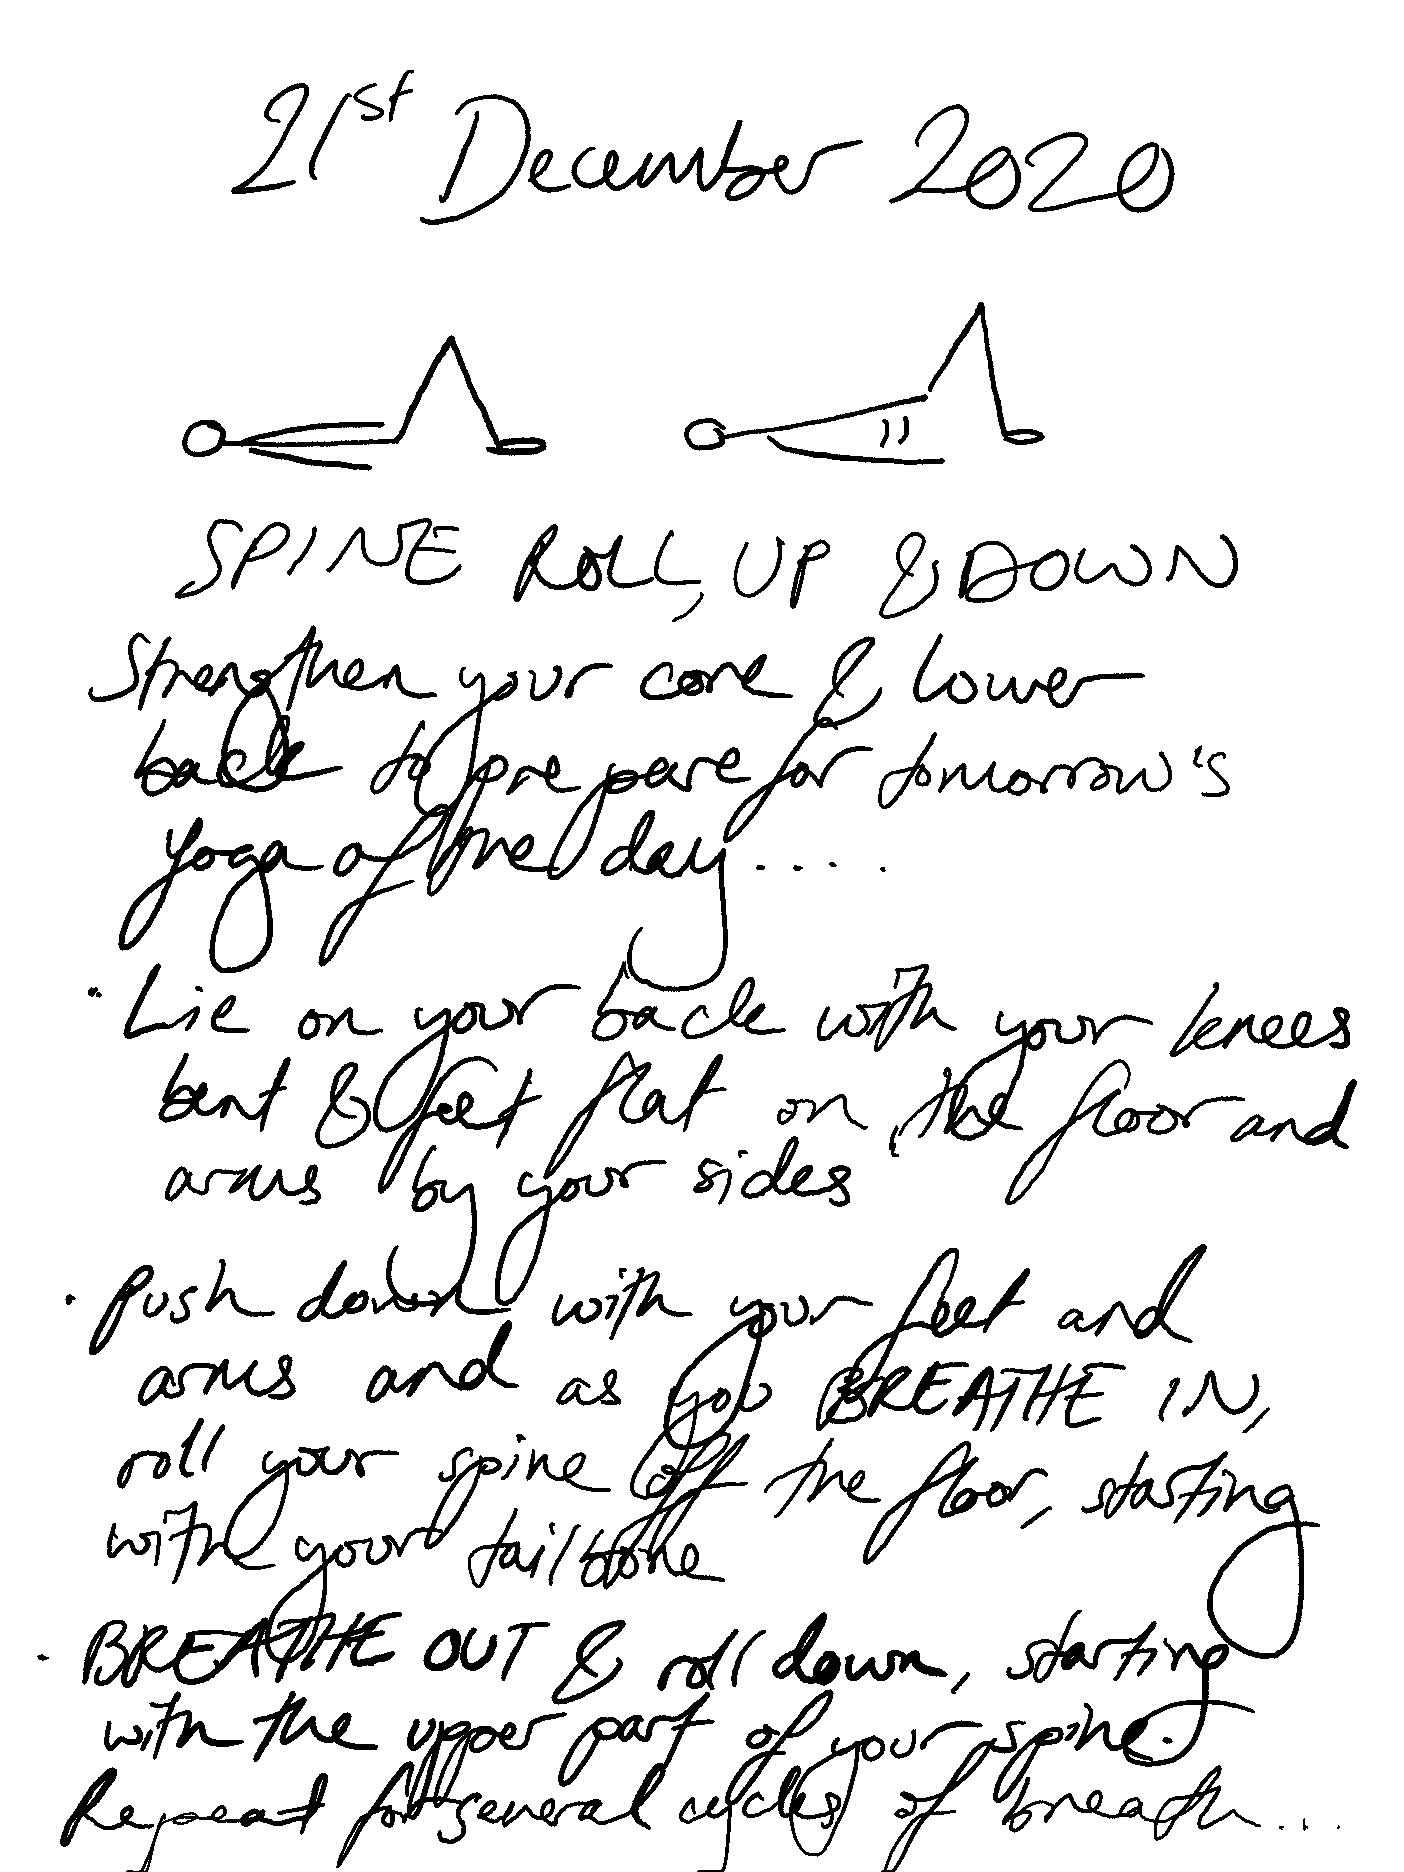 21st December 2020
SPINE ROLL, UP & DOWN
Strengthen your core & lower
back to prepare for tomorrow's
yoga of the day....
· Lie on your back with your knees
bent & feet flat on the floor and
arms by your sides
· Push down with your feet and
arms and as you BREATHE IN,
roll your spine off the floor, starting
with your tailbone
· BREATHE OUT & roll down, starting
with the upper part of your spine.
Repeat for several cycles of breath...